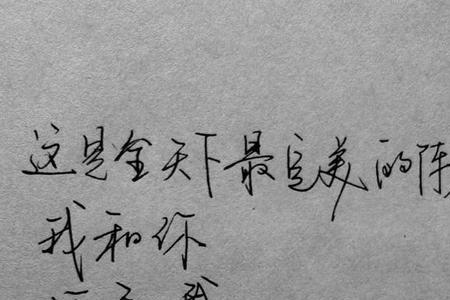 这是全天下最完美的陈
我和你